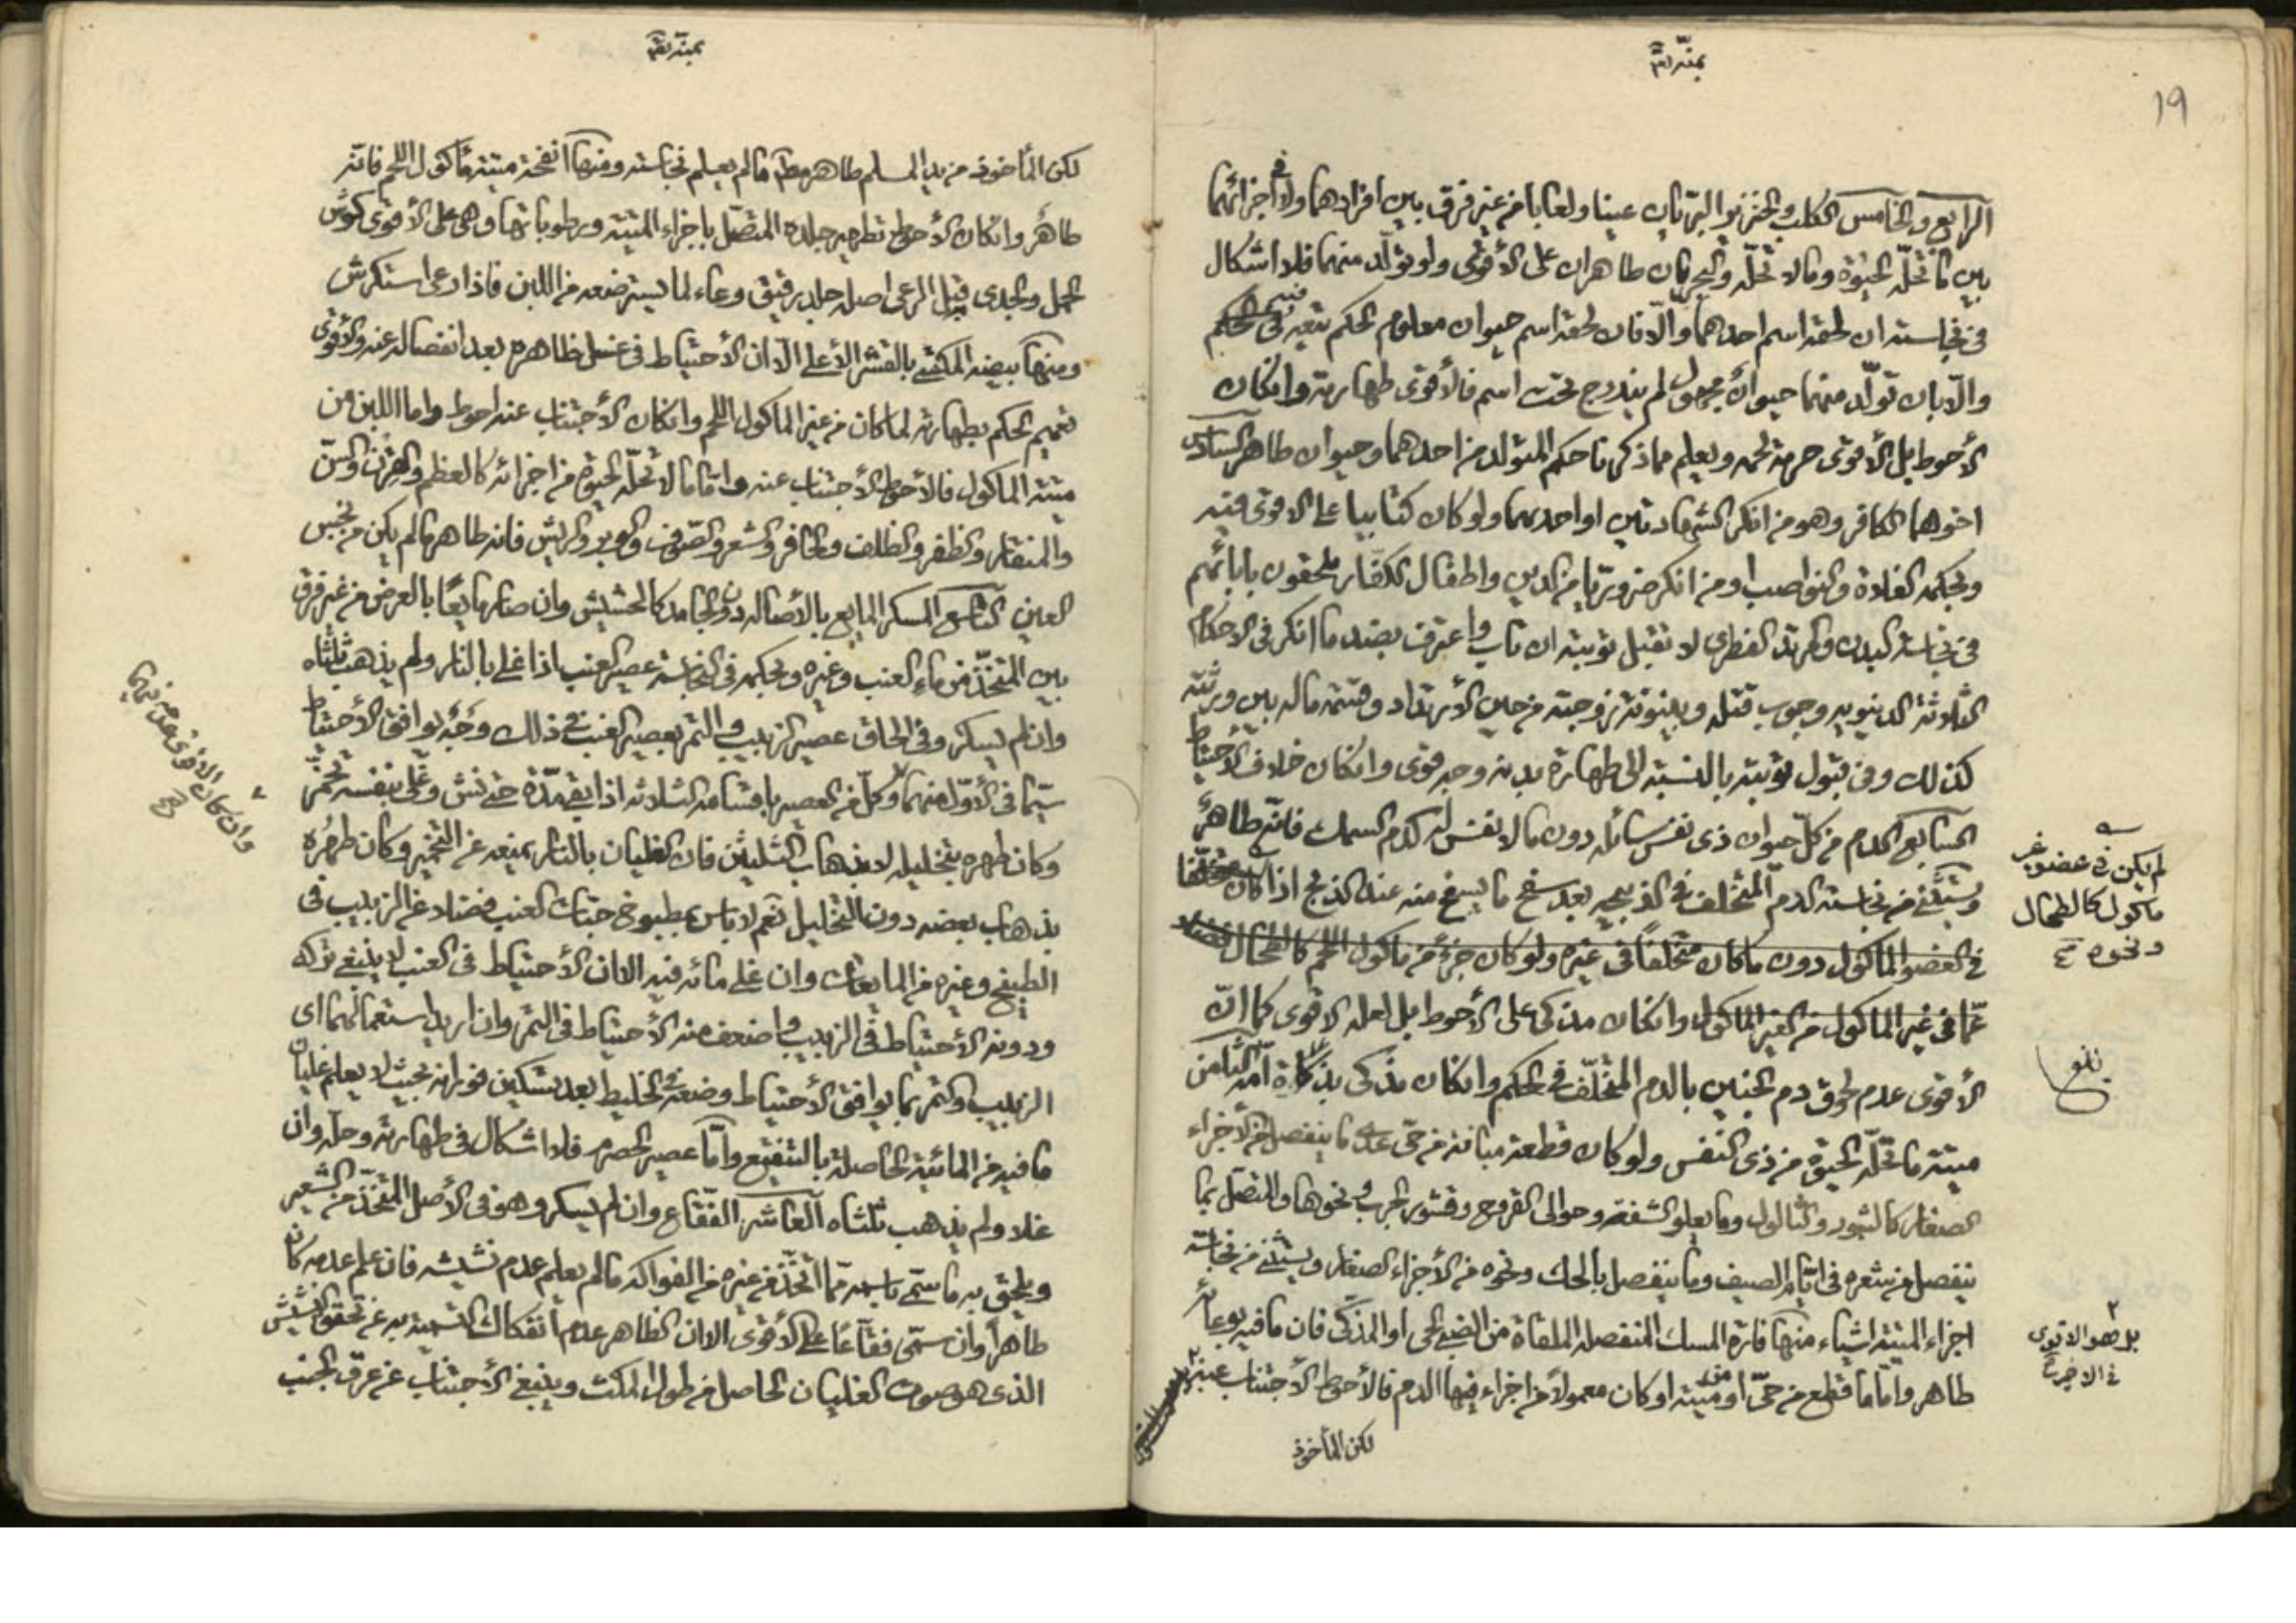 19
بمنه تعالى
الرابع والخامس الكلب والخنزير البريان عينا ولعابا من غير فرق بين افرادهما ولا في اجزائهما
بين ما تحله الحيوة وما لا تحله والبحريان طاهران على الأقوى ولو تولد منهما فلا اشكال
في نجاسته ان لحقه اسم احدهما والا فان لحقه اسم حيوان معلوم الحكم تبعه في الحكم
والا بان تولد منهما حيوان مجهول لم يندرج تحت اسم فالأقوى طهارته وان كان
الأحوط بل الأقوى حرمة لحمه ويعلم مما ذكرنا حكم المتولد من احدهما وحيوان طاهر السادس
اخوهما الكافر وهو من انكر الشهادتين او احديهما ولو كان كتابيا على الاقوى فيه
وبحكمه الغلاة والنواصب ومن انكر ضروريا من الدين واطفال الكفار ملحقون بابائهم
في نجاسة البدن والمرتد الفطري لا تقبل توبته ان تاب واعترف بضد ما انكر في الاحكام
الثلاثة الدنيويه وجوب قتله وبينونة زوجته من حين الأرتداد وقسمة ماله بين ورثته
كذلك وفي قبول توبته بالنسبة الى طهارة بدنه وجه قوى وان كان خلاف الأحتياط
السابع الدم من كل حيوان ذي نفس سائله دون ما لا نفس له كدم السمك فانه طاهر
ويستثنى من نجاسة الدم المتخلف في الذبيحه بعد سفح ما يسفح منه عند الذبح اذا كان متخلفا
في العضو الماكول دون ما كان متخلفا في غيره ولو كان جزء من ماكول اللحم كالطحال
عما في غير الماكول من الغير الماكول وان كان مذكى على الأحوط بل لعله الاقوى كما ان
الأقوى عدم لحوق دم الجنين بالدم المتخلف في الحكم وان كان مذكى بذكاة امه الثامن
ميتة ما تحله الحيوة من ذي النفس ولو كان قطعة مبانة من حي عدى ما ينفصل من الاجزاء
الصغار كالبثور والثالول وما يعلو الشفة وحوالى القروح وقشور الجرب ونحوها والمتصل بما
ينفصل من شعره في ايام الصيف وما ينفصل بالحك ونحوه من الأجزاء الصغار ويستثنى من نجاسة
اجزاء الميتة اشياء منها فارة المسك المنفصله الملقاة من الضبي الحي او المذكى فان ما فيه وعائه
طاهر واما ما قطع من حي او من ميته او كان معمولا من اجزاء فيها الدم فالأحوط الأجتناب عنه
لكن المأخوذ
لم يكن في عضو غير
ماكول كالطحال
ونحوه
بلغ
بل هو الاقوى
في الاخير
بمنه تعالى
لكن المأخوذ من يد المسلم طاهر مطلقا ما لم يعلم نجاسته ومنها انفحة ميتة مأكول اللحم فانه
طاهر وان كان الأحوط تطهير جلده المتصل باجزاء الميتة وبرطوباتها وهي على الأقوى كرش
الحمل والجدي قبل الرعي اصله جلد رقيق وعاء لما يسترضعه من اللبن فاذا رعى استكرش
ومنها بيضه المكتسي بالقشر الأعلى الا ان الأحتياط في غسل ظاهره بعد انفصاله عنه والأقوى
تعميم الحكم بطهارته لما كان من غير الماكول اللحم وان كان الأجتناب عنه احوط واما اللبن من
ميتة الماكول فالأحوط الأجتناب عنه واما ما لا تحله الحيوة من اجزائه كالعظم والقرن والسن
والمنقار والظفر والظلف والحافر والشعر والصوف والوبر والريش فانه طاهر ما لم يكن من نجس
العين التاسع المسكر المايع بالأصاله دون الجامد كالحشيش وان صار مايعا بالعرض من غير فرق
بين المتخذ من ماء العنب وغيره وبحكمه في النجاسة عصير العنب اذا غلى بالنار ولم يذهب ثلثاه
وان لم يسكر وفي الحاق عصير الزبيب والتمر بعصير العنب في ذلك وجه يوافق الأحتياط
سيما في الأول منهما وكل من العصير باقسامه الثلاثه اذا بقى مدة حتى نش وغلى بنفسه تخمر
وكان طهره بتخليله لا بذهاب الثلثين فان الغليان بالنار يمنعه عن التخمير وكان طهره
بذهاب بعضه دون التخليل نعم لا باس بمطبوخ حبات العنب فضلا عن الزبيب في
الطبيخ وغيره من المايعات وان غلى مائه فيه الا ان الأحتياط في العنب لا ينبغي تركه
ودونه الأحتياط في الزبيب واضعف منه الأحتياط في التمر وان اريد استعمالهما اى
الزبيب والتمر بما يوافق الأحتياط وضعه في الخليط بعد تسكين فورانه بحيث لا يعلم غليان
ما فيه من المائية الحاصلة بالتنقيع واما عصير الحصرم فلا اشكال في طهارته وحله وان
غلا ولم يذهب ثلثاه العاشر الفقاع وان لم يسكر وهو في الأصل المتخذ من الشعير
ويلحق به ما سمى باسمه مما اتخذ من غيره من الفواكه ما لم يعلم عدم نشيشه فان علم عدمه كان
طاهرا وان سمى فقاعا على الأقوى الا ان الظاهر عدم انفكاك التسمية به عن تحقق النشيش
الذى هو صوت الغليان الحاصل من طول المكث وينبغي الأجتناب عن عرق الجنب
وان كان الاقوى عدمه فيهما
صح